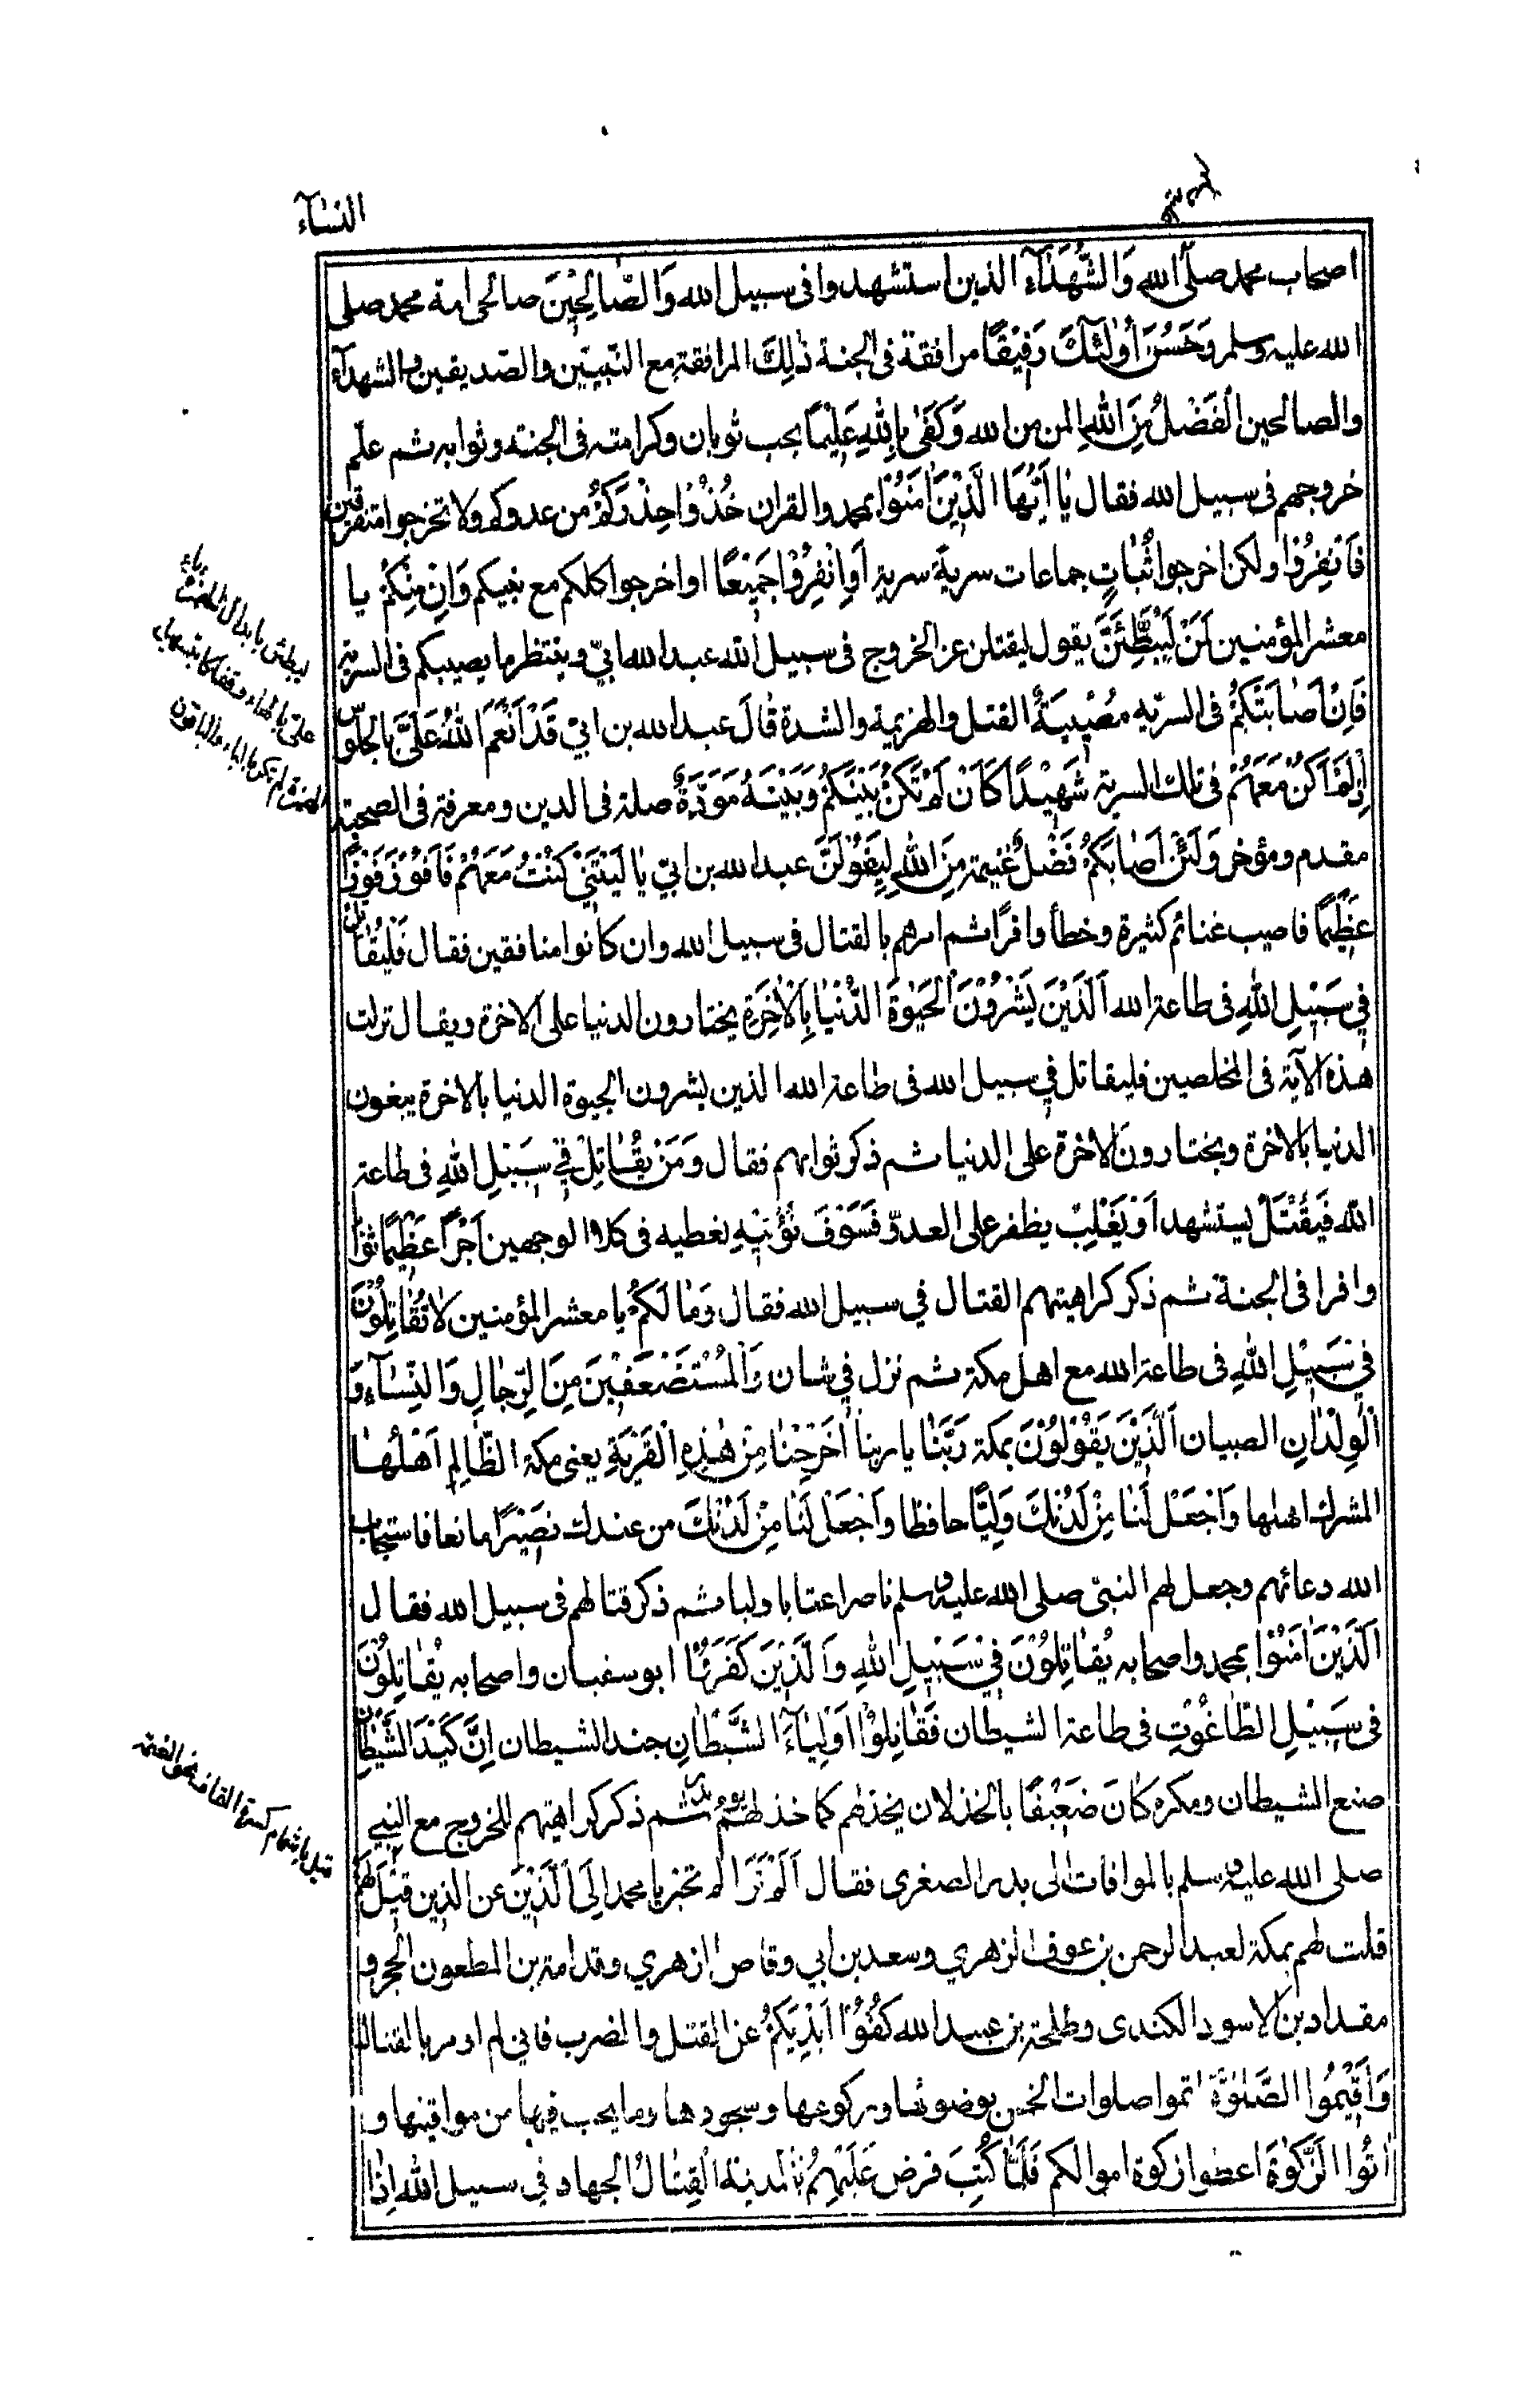 النسآء
اصحاب محمد صلى الله وَالشُّهَدَآءِ الذين استشهدوا فى سبيل الله وَالصّٰالِحِيْنَ صالحى امة محمد صلى
الله عليه وسلم وَحَسُنَ أُولٰٓئِكَ رَفِيْقًا مرافقة فى الجنة ذٰلِكَ المرافقة مع النّبيّين والصّديقين والشهدآء
والصالحين الْفَضْلُ مِنَ اللهِ المن من الله وَكَفٰى بِاللهِ عَلِيْمًا بحب ثوبان وكرامته فى الجنة وثوابه ثم علّم
خروجهم فى سبيل الله فقال يٰا اَيُّهَا الَّذِيْنَ اٰمَنُوْا بمحمد والقران خُذُوْا حِذْرَكُمْ من عدوكم ولا تخرجوا متفرقين
فَانْفِرُوْا ولكن اخرجوا ثُبٰاتٍ جماعات سرية سرية اَوِ انْفِرُوْا جَمِيْعًا او اخرجوا كلكم مع نبيكم وَاِنَّ مِنْكُمْ يا
معشر المؤمنين لَمَنْ لَيُبَطِّئَنَّ يقول ليقتلن عن الخروج فى سبيل الله عبد الله ابيّ وينتظر ما يصيبكم فى السرية
فَاِنْ اَصٰابَتْكُمْ فى السريه مُصِيْبَةٌ القتل والهزيمة والشدة قٰالَ عبد الله بن ابيّ قَدْ اَنْعَمَ اللهُ عَلَيَّ بالجلوس
اِذْ لَمْ اَكُنْ مَعَهُمْ فى تلك السرية شَهِيْدًا كَاَنْ لَمْ تَكُنْ بَيْنَكُمْ وَبَيْنَهُ مَوَدَّةٌ صلة فى الدين ومعرفة فى الصحبة
مقدم ومؤخر وَلَئِنْ اَصٰابَكُمْ فَضْلٌ غنيمة مِنَ اللهِ لَيَقُوْلَنَّ عبد الله بن ابيّ يٰا لَيْتَنِيْ كُنْتُ مَعَهُمْ فَاَفُوْزَ فَوْزًا
عَظِيْمًا فاصيب غنائم كثيرة وخطأ وافرًا ثم امرهم بالقتال فى سبيل الله وان كانوا منافقين فقال فَلْيُقٰاتِلْ
فِي سَبِيْلِ اللهِ فى طاعة الله اَلَّذِيْنَ يَشْرُوْنَ الْحَيٰوةَ الدُّنْيٰا بِالْاٰخِرَةِ يختارون الدنيا على الاخرة ويقال نزلت
هذه الآية فى المخلصين فليقاتل في سبيل الله فى طاعة الله الذين يشرون الحيوة الدنيا بالاخرة يبغون
الدنيا بالاخرة ويختارون الاخرة على الدنيا ثم ذكر ثوابهم فقال وَمَنْ يُقٰاتِلْ فِيْ سَبِيْلِ اللهِ فى طاعة
الله فَيُقْتَلْ يستشهد اَوْ يَغْلِبْ يظفر على العدوّ فَسَوْفَ نُؤْتِيْهِ نعطيه فى كلا الوجهين اَجْرًا عَظِيْمًا ثوابا
وافرا فى الجنة ثم ذكر كراهيتهم القتال في سبيل الله فقال وَمٰا لَكُمْ يا معشر المؤمنين لاٰ تُقٰاتِلُوْنَ
فِيْ سَبِيْلِ اللهِ فى طاعة الله مع اهل مكة ثم نزل في شان وَالْمُسْتَضْعَفِيْنَ مِنَ الرِّجٰالِ وَالنِّسٰآءِ وَ
الْوِلْدٰانِ الصبيان اَلَّذِيْنَ يَقُوْلُوْنَ بمكة رَبَّنٰا يا ربنا اَخْرِجْنٰا مِنْ هٰذِهِ الْقَرْيَةِ يعنى مكة الظّٰالِمِ اَهْلُهٰا
المشرك اهلها وَاجْعَلْ لَنٰا مِنْ لَدُنْكَ وَلِيًّا حافظا وَاجْعَلْ لَنٰا مِنْ لَدُنْكَ من عندك نَصِيْرًا مانعا فاستجاب
الله دعائهم وجعل لهم النبيّ صلى الله عليه وسلم ناصرا عتابا وليا ثم ذكر قتالهم فى سبيل الله فقال
اَلَّذِيْنَ اٰمَنُوْا بمحمد واصحابه يُقٰاتِلُوْنَ فِيْ سَبِيْلِ اللهِ وَالَّذِيْنَ كَفَرُوْا ابو سفيان واصحابه يُقٰاتِلُوْنَ
فى سَبِيْلِ الطّٰاغُوْتِ فى طاعة الشيطان فَقٰاتِلُوْا اَوْلِيٰآءَ الشَّيْطٰانِ جند الشيطان اِنَّ كَيْدَ الشَّيْطٰانِ
صنع الشيطان ومكره كٰانَ ضَعِيْفًا بالخذلان يخذهم كما خذلهم يوم بدر ثم ذكر كراهيتهم للخروج مع النبي
صلى الله عليه وسلم بالموافات الى بدر الصغرى فقال اَلَمْ تَرَ الم تخبر يا محمد اِلَى الَّذِيْنَ عن الذين قِيْلَ لَهُمْ
قلت لهم بمكة لعبد الرحمن بن عوف الزهري وسعد بن ابي وقاص الزهري وقدامة بن المطعون الجحر و
مقداد بن الاسود الكندى وطلحة بن عبيد الله كُفُّوْا اَيْدِيَكُمْ عن القتل والضرب فاني لم اومر بالقتال
وَاَقِيْمُوا الصَّلٰوةَ اتموا صلوات الخمس بوضوئها وركوعها وسجودها وما يجب فيها من مواقيتها و
اٰتُوا الزَّكٰوةَ اعطوا زكوة اموالكم فَلَمّٰا كُتِبَ فرض عَلَيْهِمُ بالمدينة الْقِتٰالُ الجهاد في سبيل الله اِذٰا